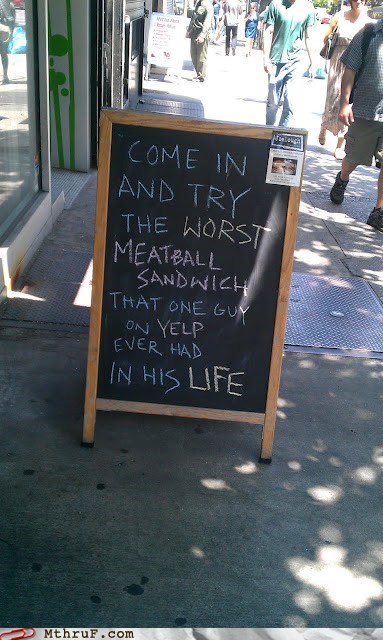 COME IN
AND TRY
THE WORST
MEATBALL
SANDWICH
THAT ONE GUY
ON YELP
EVER HAD
IN HIS LIFE
MThruF.com